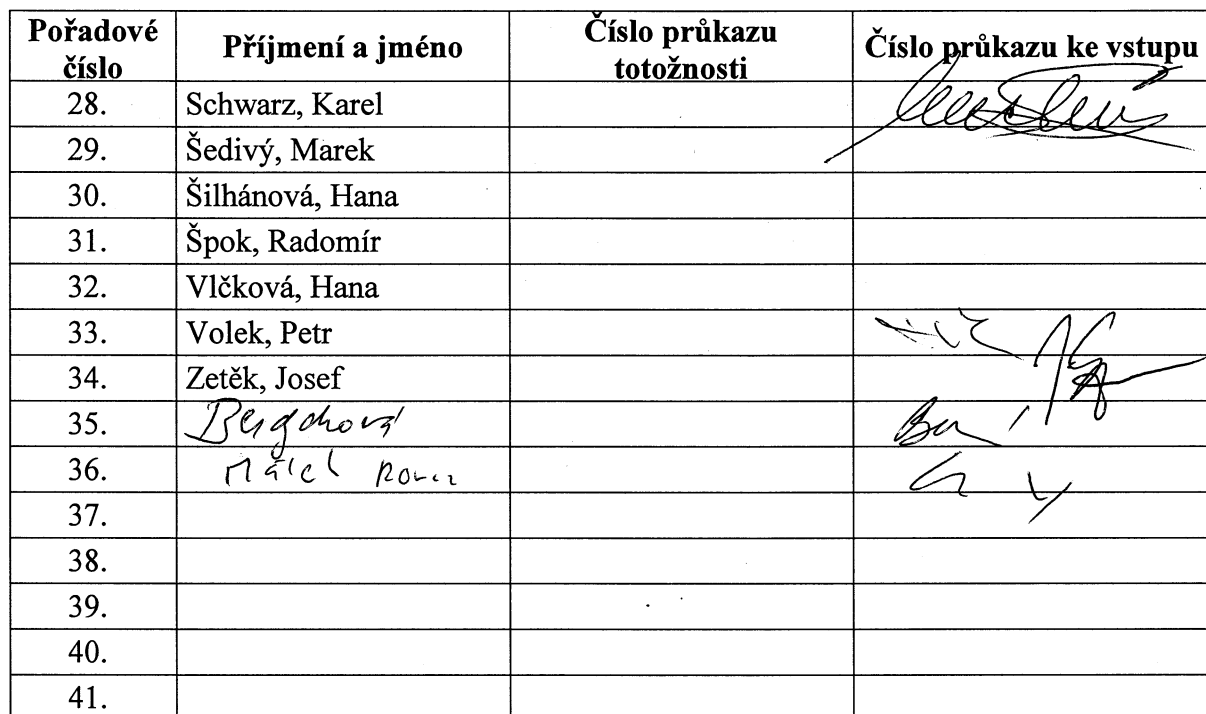 Pořadové číslo Příjmení a jméno Číslo průkazu totožnosti Číslo průkazu ke vstupu
28. Schwarz, Karel
29. Šedivý, Marek
30. Šilhánová, Hana
31. Špok, Radomír
32. Vlčková, Hana
33. Volek, Petr
34. Zetěk, Josef
35.
36.
37.
38.
39.
40.
41.